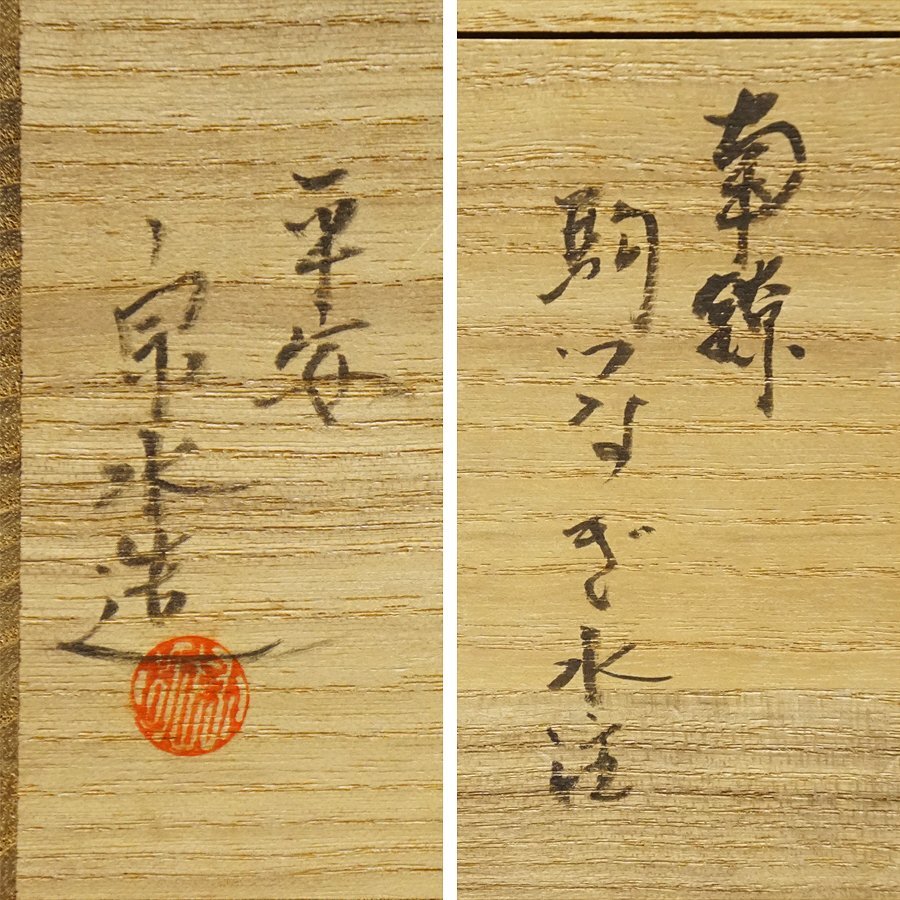 平安
宗水造
南鐐
駒つなぎ水注